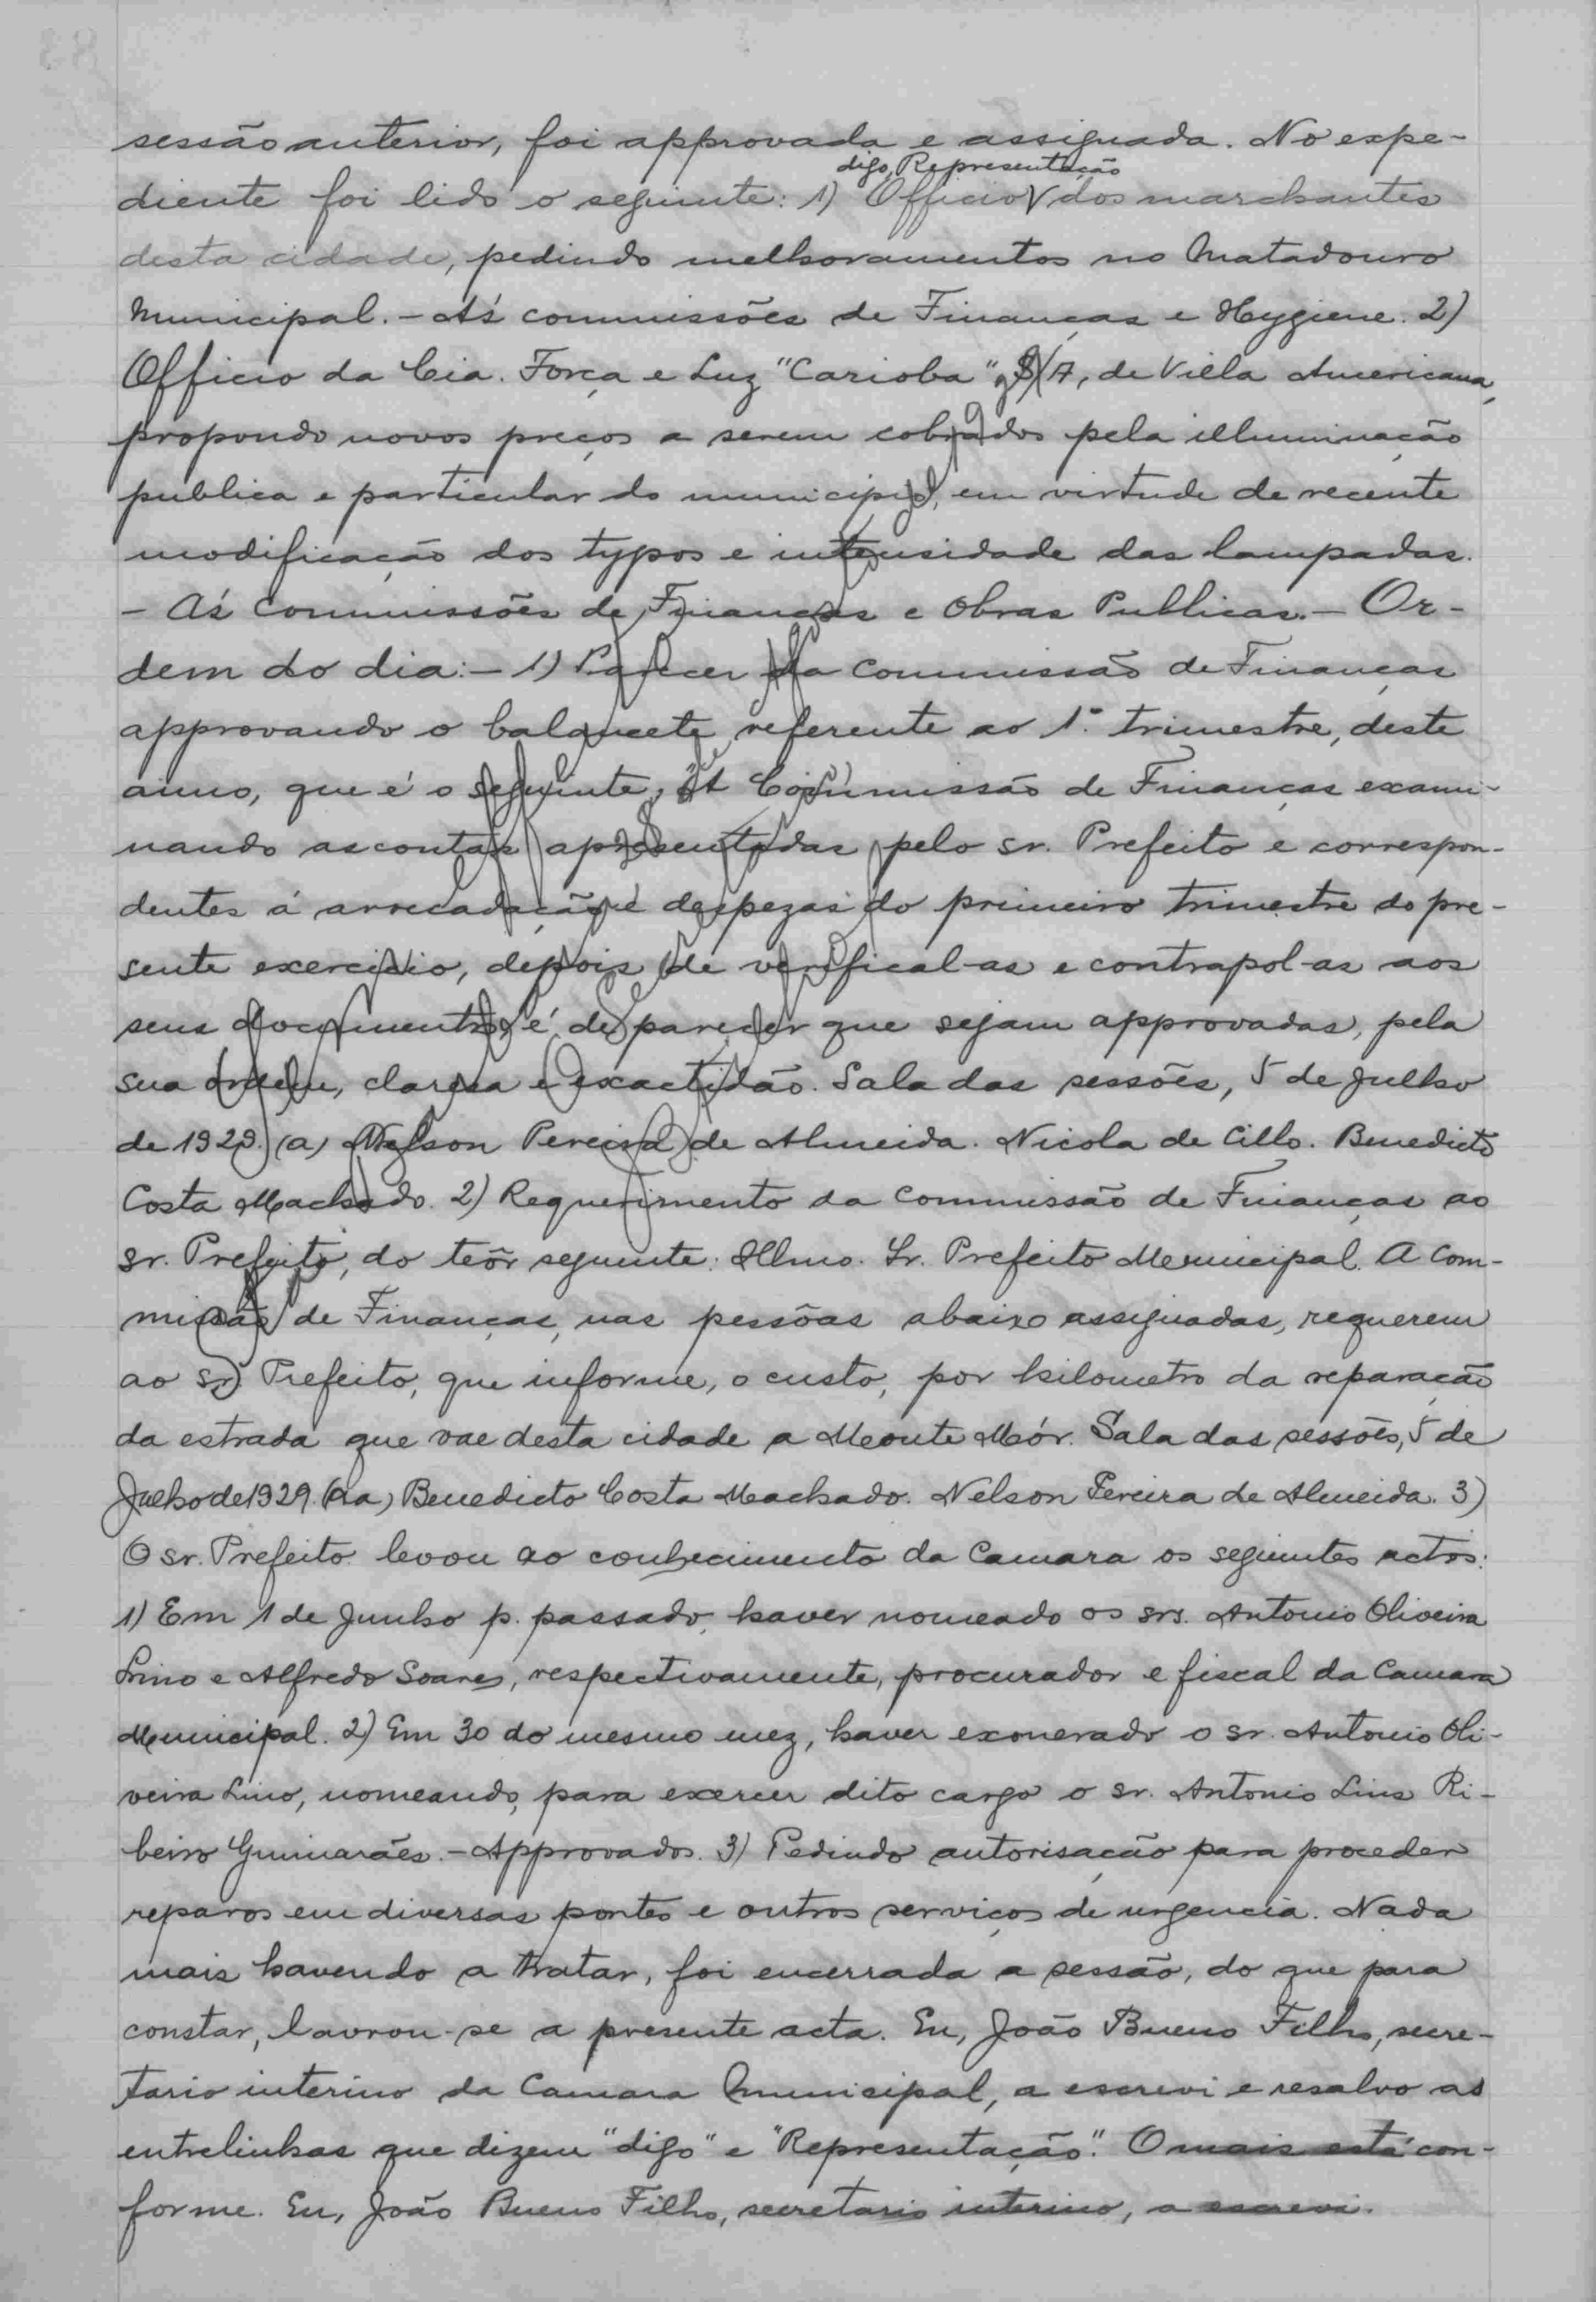 sessão anterior, foi approvada e assignada. No expe-
digo, Representação
diente foi lido o seguinte: 1) Officio V dos marchantes
desta cidade, pedindo melhoramentos no Matadouro
Municipal. - Ás commissões de Finanças e Hygiene. 2)
Officio da Cia. Força e Luz "Carioba" S/A, de Villa Americana,
propondo novos preços a serem cobrados pela illuminação
publica e particular do municipio, em virtude de recente
modificação dos typos e intensidade das lampadas.
- Ás Commissões de Finanças e Obras Publicas. - Or-
dem do dia: - 1) Parecer da Commissão de Finanças
approvando o balancete, referente ao 1º trimestre, deste
anno, que é o seguinte, "A Commissão de Finanças exami-
nando as contas apresentadas pelo sr. Prefeito e correspon-
dentes á arrecadação e despezas do primeiro trimestre do pre-
sente exercicio, depois de verifical-as e contrapol-as aos
seus documentos, é de parecer que sejam approvadas, pela
sua ordem, claresa e exactidão. Sala das sessões, 5 de Julho
de 1929. (a) Nelson Pereira de Almeida. Nicola de Cillo. Benedicto
Costa Machado. 2) Requerimento da Commissão de Finanças ao
sr. Prefeito, do teôr seguinte: Illmo. Sr. Prefeito Municipal. A Com-
missão de Finanças, nas pessôas abaixo assignadas, requerem
ao sr. Prefeito, que informe, o custo, por kilometro da reparação
da estrada que vae desta cidade a Monte Mór. Sala das sessões, 5 de
Julho de 1929. (aa) Benedicto Costa Machado. Nelson Pereira de Almeida. 3)
O sr. Prefeito levou ao conhecimento da Camara os seguintes actos:
1) Em 1 de Junho p. passado, haver nomeado os srs. Antonio Oliveira
Lino e Alfredo Soares, respectivamente, procurador e fiscal da Camara
Municipal. 2) Em 30 do mesmo mez, haver exonerado o sr. Antonio Oli-
veira Lino, nomeando, para exercer dito cargo o sr. Antonio Lins Ri-
beiro Guimarães. - Approvados. 3) Pedindo autorisação para proceder
reparos em diversas pontes e outros serviços de urgencia. Nada
mais havendo a tratar, foi encerrada a sessão, do que para
constar, lavrou-se a presente acta. Eu, João Bueno Filho, secre-
tario interino da Camara Municipal, a escrevi e resalvo as
entrelinhas que dizem "digo" e "Representação". O mais está con-
forme. Eu, João Bueno Filho, secretario interino, a escrevi.